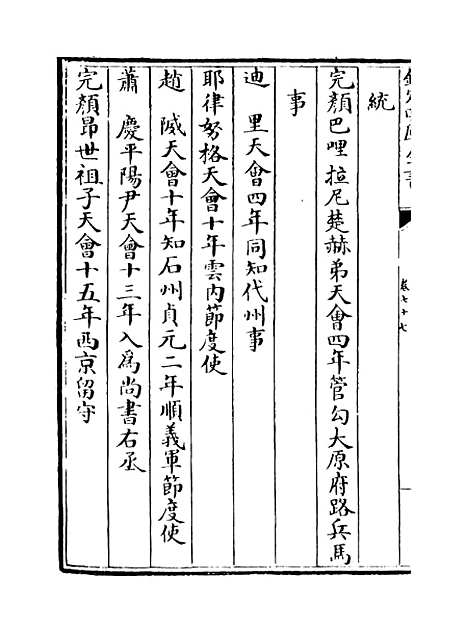 統
完顏巴哩 拉尼楚赫弟天會四年管勾大原府路兵馬
事
迪 里天會四年同知代州事
耶律努格天會十年雲內節度使
趙 㷄天會十年知石州貞元二年順義軍節度使
蕭 慶平陽尹天會十三年入爲尚書右丞
完顏昂世祖子天會十五年西京留守
卷七十七